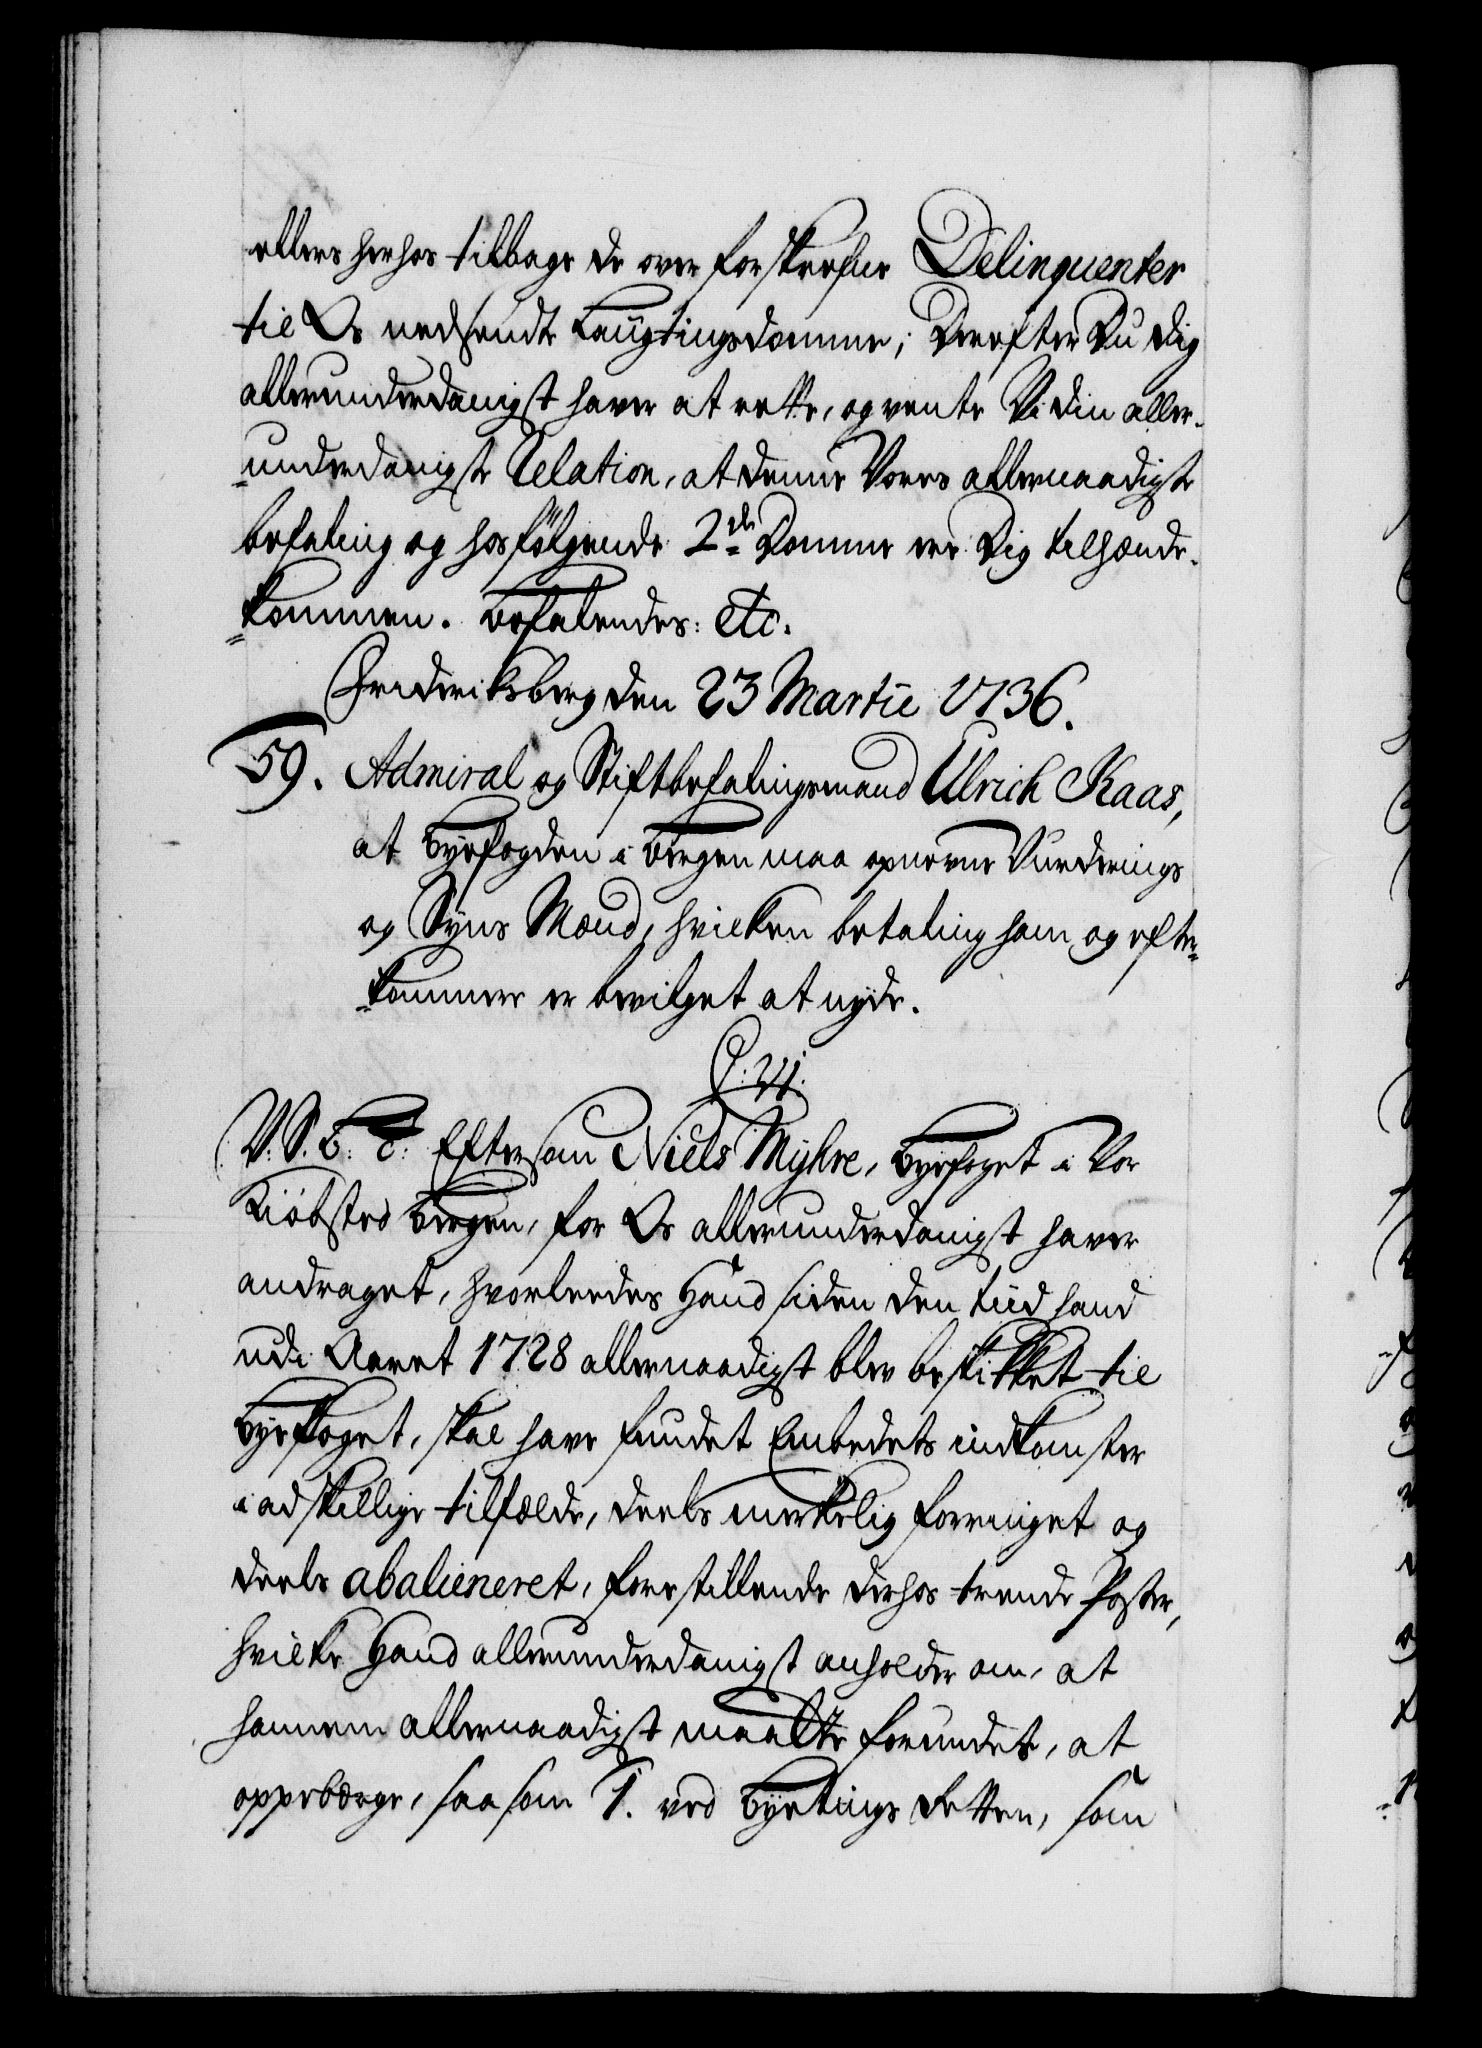 ellers herhos tilbage de over forskrefne Delinquenter
til Os nedsendte Laugtingsdomme; Derefter Du dig
allerunderdanigst haver at rette, og vente Vi din aller-
underdanigste Relation, at denne Vores allernaadigste
befaling og hosfölgende 2de Domme ere Dig tilhænde-
kommen. Befalendes: etc.
Frideriksberg den 23 Martii 1736.
59. Admiral og Stiftbefalingsmand Ulrich Kaas,
at Byefogden i Bergen maa opnevne Vurderings
og Syns Mænd, hvilken betaling ham og efter-
kommere er bevilget at nyde.
C: VI:
V. S. B: T: Eftersom Niels Myhre, Byefoget i Vor
Kiöbsted Bergen, for Os allerunderdanigst haver
andraget, hvorleedes Hand siden den tiid hand
udi Aaret 1728 allernaadigst blev beskikket til
Byefoget, skal have fundet Embedets indkomster
i adskillige tilfælde, deels merkelig forringet og
deels abalieneret, forestillende derhos trende Poster,
hvilke Hand allerunderdanigst anholder om, at
hannem allernaadigst maatte forundes, at
oppebærge, saa som 1. ved Byetings Retten, som